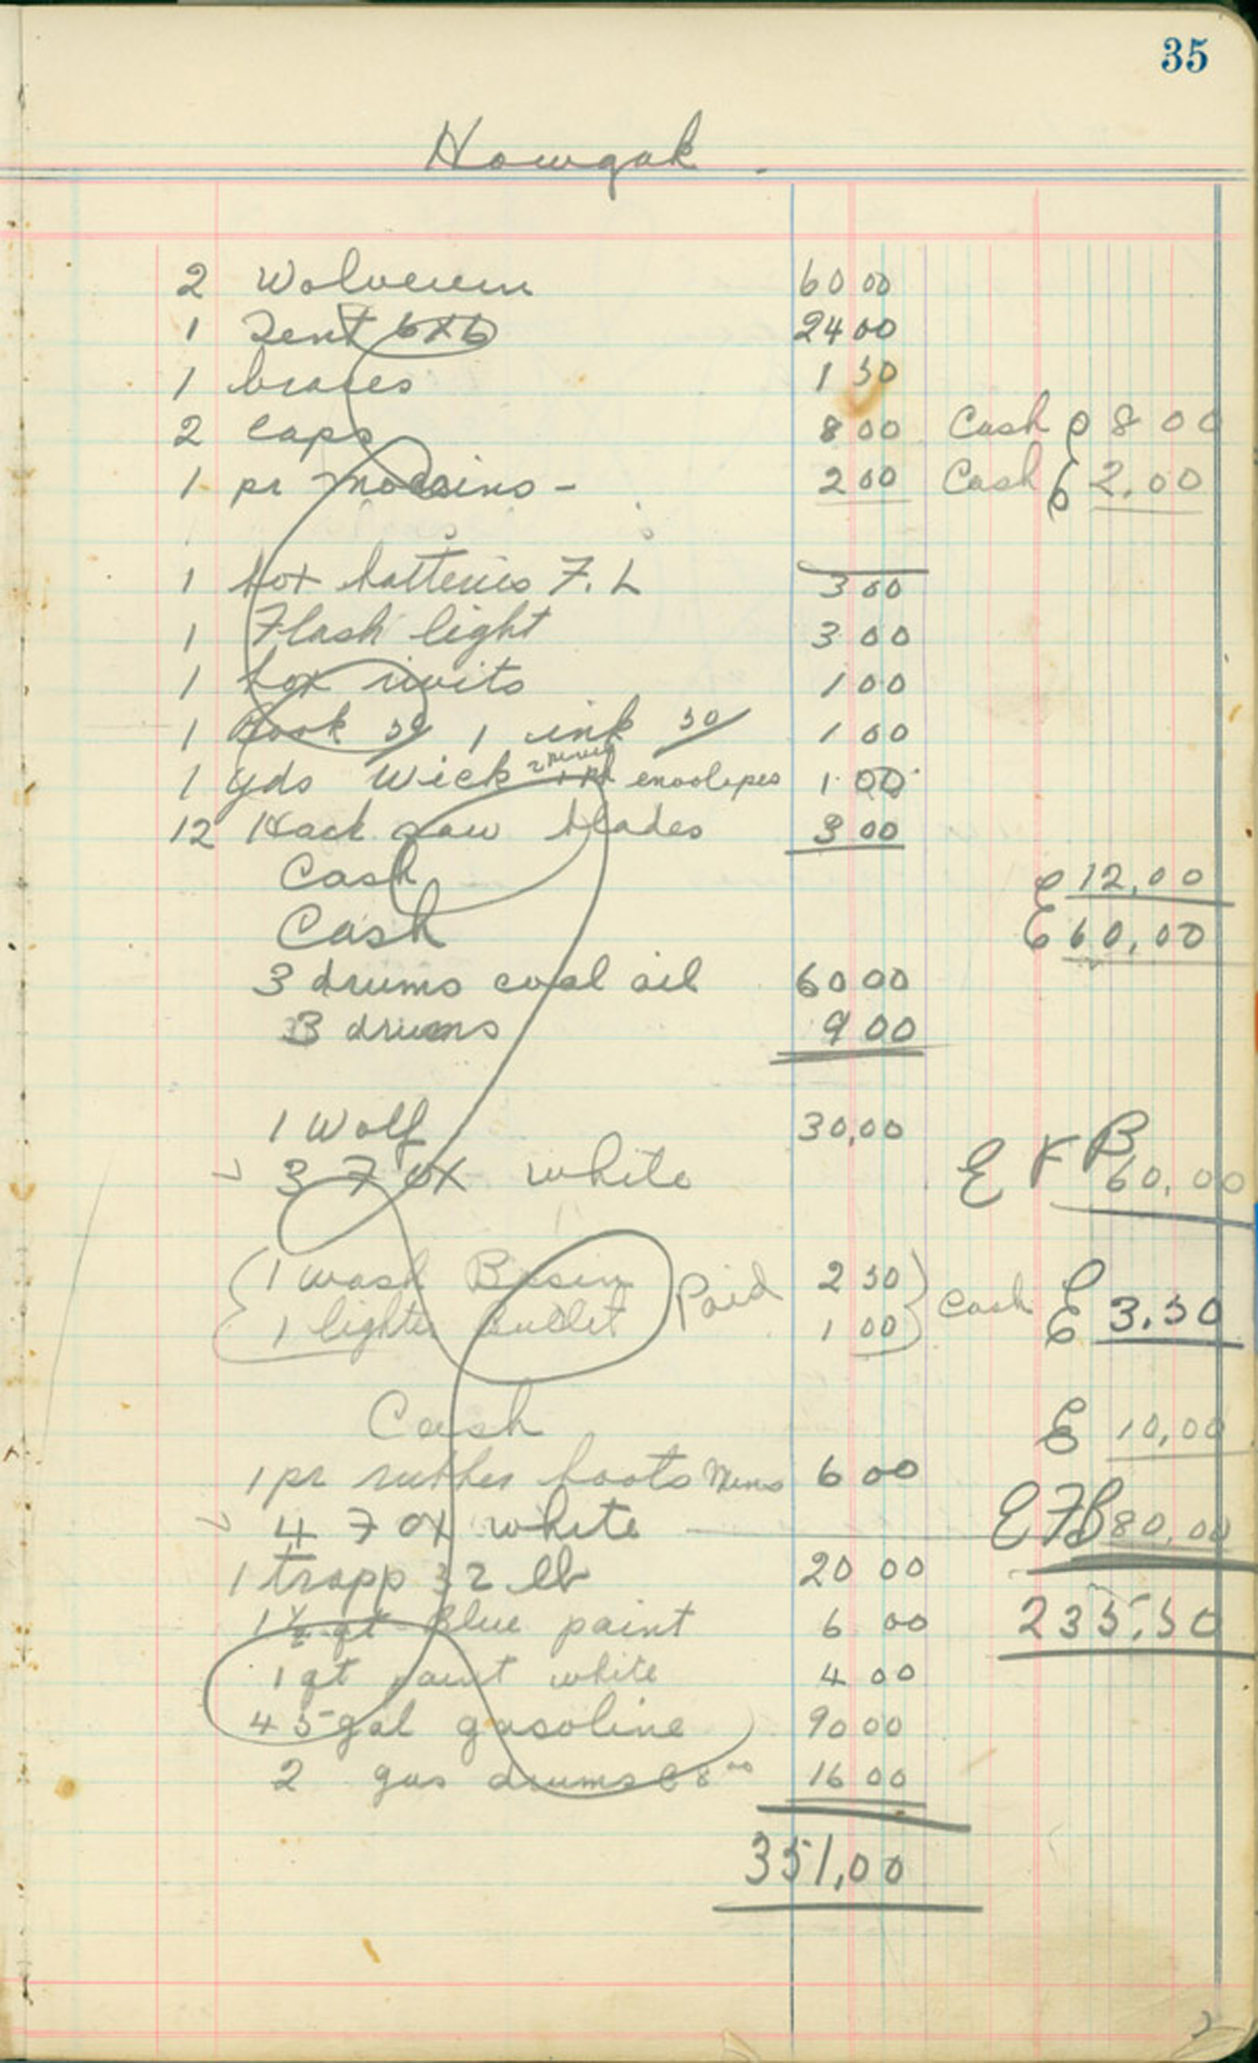 35
Howgak
2 Wolverein 60 00
1 Tent 6x6 24 00
1 braces 1 50
2 caps 8 00 Cash 8 00
1 pr mocsins - 2 00 Cash 2.00
1 box batteries F. L 3 00
1 Flash light 3 00
1 box rivits 1 00
1 Book 50 1 ink 50 1 00
1 yds Wick envolepes 1 00
12 Hack saw blades 3 00
Cash 12,00
Cash E 60,00
3 drums coal oil 60 00
3 drums 9 00
1 Wolf 30,00
3 Fox white E F B 60,00
1 wash Basin Paid 2 50
1 lighter 1 00 Cash E 3,50
Cash E 10,00
1 pr rubber boots Mens 6 00
4 Fox white E F B 80,00
1 trapp 32 lb 20 00
1 ½ qt Blue paint 6 00 235,50
1 qt paint white 4 00
45 gal gasoline 90 00
2 gas drums @ 8 00 16 00
351,00